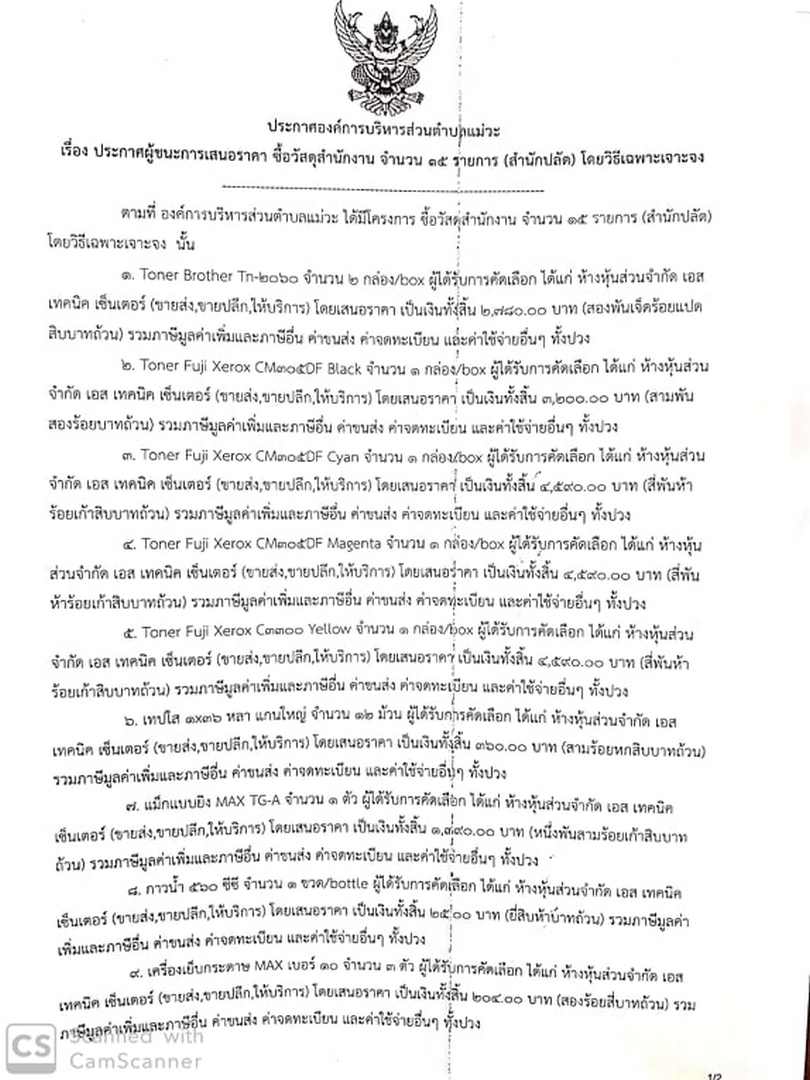 ประกาศองค์การบริหารส่วนตำบลแม่วะ
เรื่อง ประกาศผู้ชนะการเสนอราคา ซื้อวัสดุสำนักงาน จำนวน ๑๕ รายการ (สำนักปลัด) โดยวิธีเฉพาะเจาะจง
ตามที่ องค์การบริหารส่วนตำบลแม่วะ ได้มีโครงการ ซื้อวัสดุสำนักงาน จำนวน ๑๕ รายการ (สำนักปลัด)
โดยวิธีเฉพาะเจาะจง นั้น
๑. Toner Brother Tn-๒๐๖๐ จำนวน ๒ กล่อง/box ผู้ได้รับการคัดเลือก ได้แก่ ห้างหุ้นส่วนจำกัด เอส
เทคนิค เซ็นเตอร์ (ขายส่ง,ขายปลีก,ให้บริการ) โดยเสนอราคา เป็นเงินทั้งสิ้น ๒,๗๘๐.๐๐ บาท (สองพันเจ็ดร้อยแปด
สิบบาทถ้วน) รวมภาษีมูลค่าเพิ่มและภาษีอื่น ค่าขนส่ง ค่าจดทะเบียน และค่าใช้จ่ายอื่นๆ ทั้งปวง
๒. Toner Fuji Xerox CM๓๐๕DF Black จำนวน ๑ กล่อง/box ผู้ได้รับการคัดเลือก ได้แก่ ห้างหุ้นส่วน
จำกัด เอส เทคนิค เซ็นเตอร์ (ขายส่ง,ขายปลีก,ให้บริการ) โดยเสนอราคา เป็นเงินทั้งสิ้น ๓,๒๐๐.๐๐ บาท (สามพัน
สองร้อยบาทถ้วน) รวมภาษีมูลค่าเพิ่มและภาษีอื่น ค่าขนส่ง ค่าจดทะเบียน และค่าใช้จ่ายอื่นๆ ทั้งปวง
๓. Toner Fuji Xerox CM๓๐๕DF Cyan จำนวน ๑ กล่อง/box ผู้ได้รับการคัดเลือก ได้แก่ ห้างหุ้นส่วน
จำกัด เอส เทคนิค เซ็นเตอร์ (ขายส่ง,ขายปลีก,ให้บริการ) โดยเสนอราคา เป็นเงินทั้งสิ้น ๔,๕๙๐.๐๐ บาท (สี่พันห้า
ร้อยเก้าสิบบาทถ้วน) รวมภาษีมูลค่าเพิ่มและภาษีอื่น ค่าขนส่ง ค่าจดทะเบียน และค่าใช้จ่ายอื่นๆ ทั้งปวง
๔. Toner Fuji Xerox CM๓๐๕DF Magenta จำนวน ๑ กล่อง/box ผู้ได้รับการคัดเลือก ได้แก่ ห้างหุ้น
ส่วนจำกัด เอส เทคนิค เซ็นเตอร์ (ขายส่ง,ขายปลีก,ให้บริการ) โดยเสนอราคา เป็นเงินทั้งสิ้น ๔,๕๙๐.๐๐ บาท (สี่พัน
ห้าร้อยเก้าสิบบาทถ้วน) รวมภาษีมูลค่าเพิ่มและภาษีอื่น ค่าขนส่ง ค่าจดทะเบียน และค่าใช้จ่ายอื่นๆ ทั้งปวง
๕. Toner Fuji Xerox C๓๓๐๐ Yellow จำนวน ๑ กล่อง/box ผู้ได้รับการคัดเลือก ได้แก่ ห้างหุ้นส่วน
จำกัด เอส เทคนิค เซ็นเตอร์ (ขายส่ง,ขายปลีก,ให้บริการ) โดยเสนอราคา เป็นเงินทั้งสิ้น ๔,๕๙๐.๐๐ บาท (สี่พันห้า
ร้อยเก้าสิบบาทถ้วน) รวมภาษีมูลค่าเพิ่มและภาษีอื่น ค่าขนส่ง ค่าจดทะเบียน และค่าใช้จ่ายอื่นๆ ทั้งปวง
๖. เทปใส ๑x๓๖ หลา แกนใหญ่ จำนวน ๑๒ ม้วน ผู้ได้รับการคัดเลือก ได้แก่ ห้างหุ้นส่วนจำกัด เอส
เทคนิค เซ็นเตอร์ (ขายส่ง,ขายปลีก,ให้บริการ) โดยเสนอราคา เป็นเงินทั้งสิ้น ๓๖๐.๐๐ บาท (สามร้อยหกสิบบาทถ้วน)
รวมภาษีมูลค่าเพิ่มและภาษีอื่น ค่าขนส่ง ค่าจดทะเบียน และค่าใช้จ่ายอื่นๆ ทั้งปวง
๗. แม็กแบบยิง MAX TG-A จำนวน ๑ ตัว ผู้ได้รับการคัดเลือก ได้แก่ ห้างหุ้นส่วนจำกัด เอส เทคนิค
เซ็นเตอร์ (ขายส่ง,ขายปลีก,ให้บริการ) โดยเสนอราคา เป็นเงินทั้งสิ้น ๑,๓๙๐.๐๐ บาท (หนึ่งพันสามร้อยเก้าสิบบาท
ถ้วน) รวมภาษีมูลค่าเพิ่มและภาษีอื่น ค่าขนส่ง ค่าจดทะเบียน และค่าใช้จ่ายอื่นๆ ทั้งปวง
๘. กาวน้ำ ๕๖๐ ซีซี จำนวน ๑ ขวด/bottle ผู้ได้รับการคัดเลือก ได้แก่ ห้างหุ้นส่วนจำกัด เอส เทคนิค
เซ็นเตอร์ (ขายส่ง,ขายปลีก,ให้บริการ) โดยเสนอราคา เป็นเงินทั้งสิ้น ๒๕.๐๐ บาท (ยี่สิบห้าบาทถ้วน) รวมภาษีมูลค่า
เพิ่มและภาษีอื่น ค่าขนส่ง ค่าจดทะเบียน และค่าใช้จ่ายอื่นๆ ทั้งปวง
๙. เครื่องเย็บกระดาษ MAX เบอร์ ๑๐ จำนวน ๓ ตัว ผู้ได้รับการคัดเลือก ได้แก่ ห้างหุ้นส่วนจำกัด เอส
เทคนิค เซ็นเตอร์ (ขายส่ง,ขายปลีก,ให้บริการ) โดยเสนอราคา เป็นเงินทั้งสิ้น ๒๐๔.๐๐ บาท (สองร้อยสี่บาทถ้วน) รวม
ภาษีมูลค่าเพิ่มและภาษีอื่น ค่าขนส่ง ค่าจดทะเบียน และค่าใช้จ่ายอื่นๆ ทั้งปวง
CS Scanned with
CamScanner
1/2